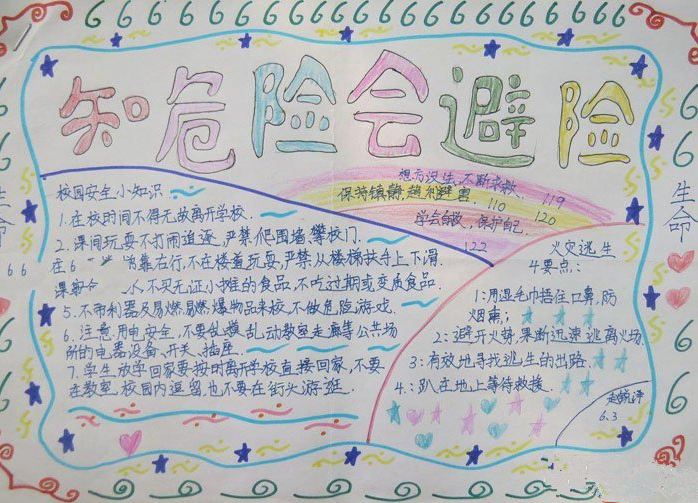 知危险会避险
校园安全小知识
1.在校时间不得无故离开学校.
2.课间玩耍不打闹追逐,严禁爬围墙,攀校门.
靠右行,不在楼道玩耍,严禁从楼梯扶手上下滑.
不买无证小摊的食品,不吃过期或变质食品.
5.不带利器及易燃易爆物品来校,不做危险游戏.
6.注意用电安全,不要乱摸乱动教室走廊等公共场
所的电器设备、开关、插座.
7.学生放学回家要按时离开学校直接回家,不要
在教室校园内逗留,也不要在街头游逛.
求救. 119
保持镇静,趋利避害. 110
学会自救,保护自己. 120
122
火灾逃生
4要点:
1:用湿毛巾捂住口鼻,防
烟雨;
2:避开火势,果断迅速逃离火场
3:有效地寻找逃生的出路.
4:趴在地上等待救援.
6.3
生命
生命